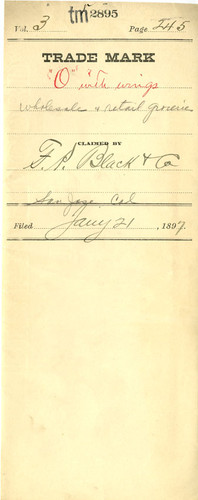 tm 2895
Vol. 3 Page 545
TRADE MARK
"O" with wings
wholesale & retail groceries
CLAIMED BY
F. P. Black & Co
San Jose, Cal
Filed Jany 21, 1897.